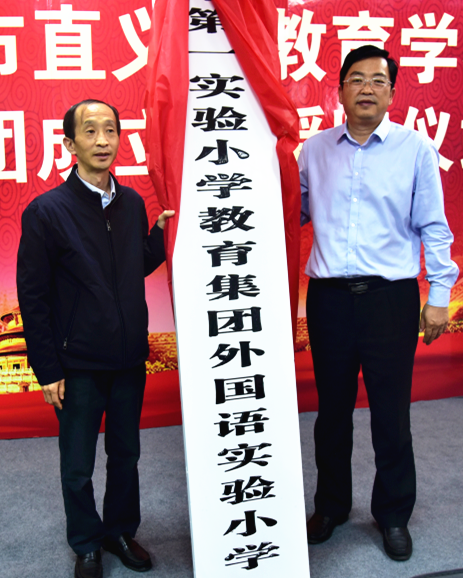 市直义 教育学
团成立 授 仪
第一实验小学教育集团外国语实验小学